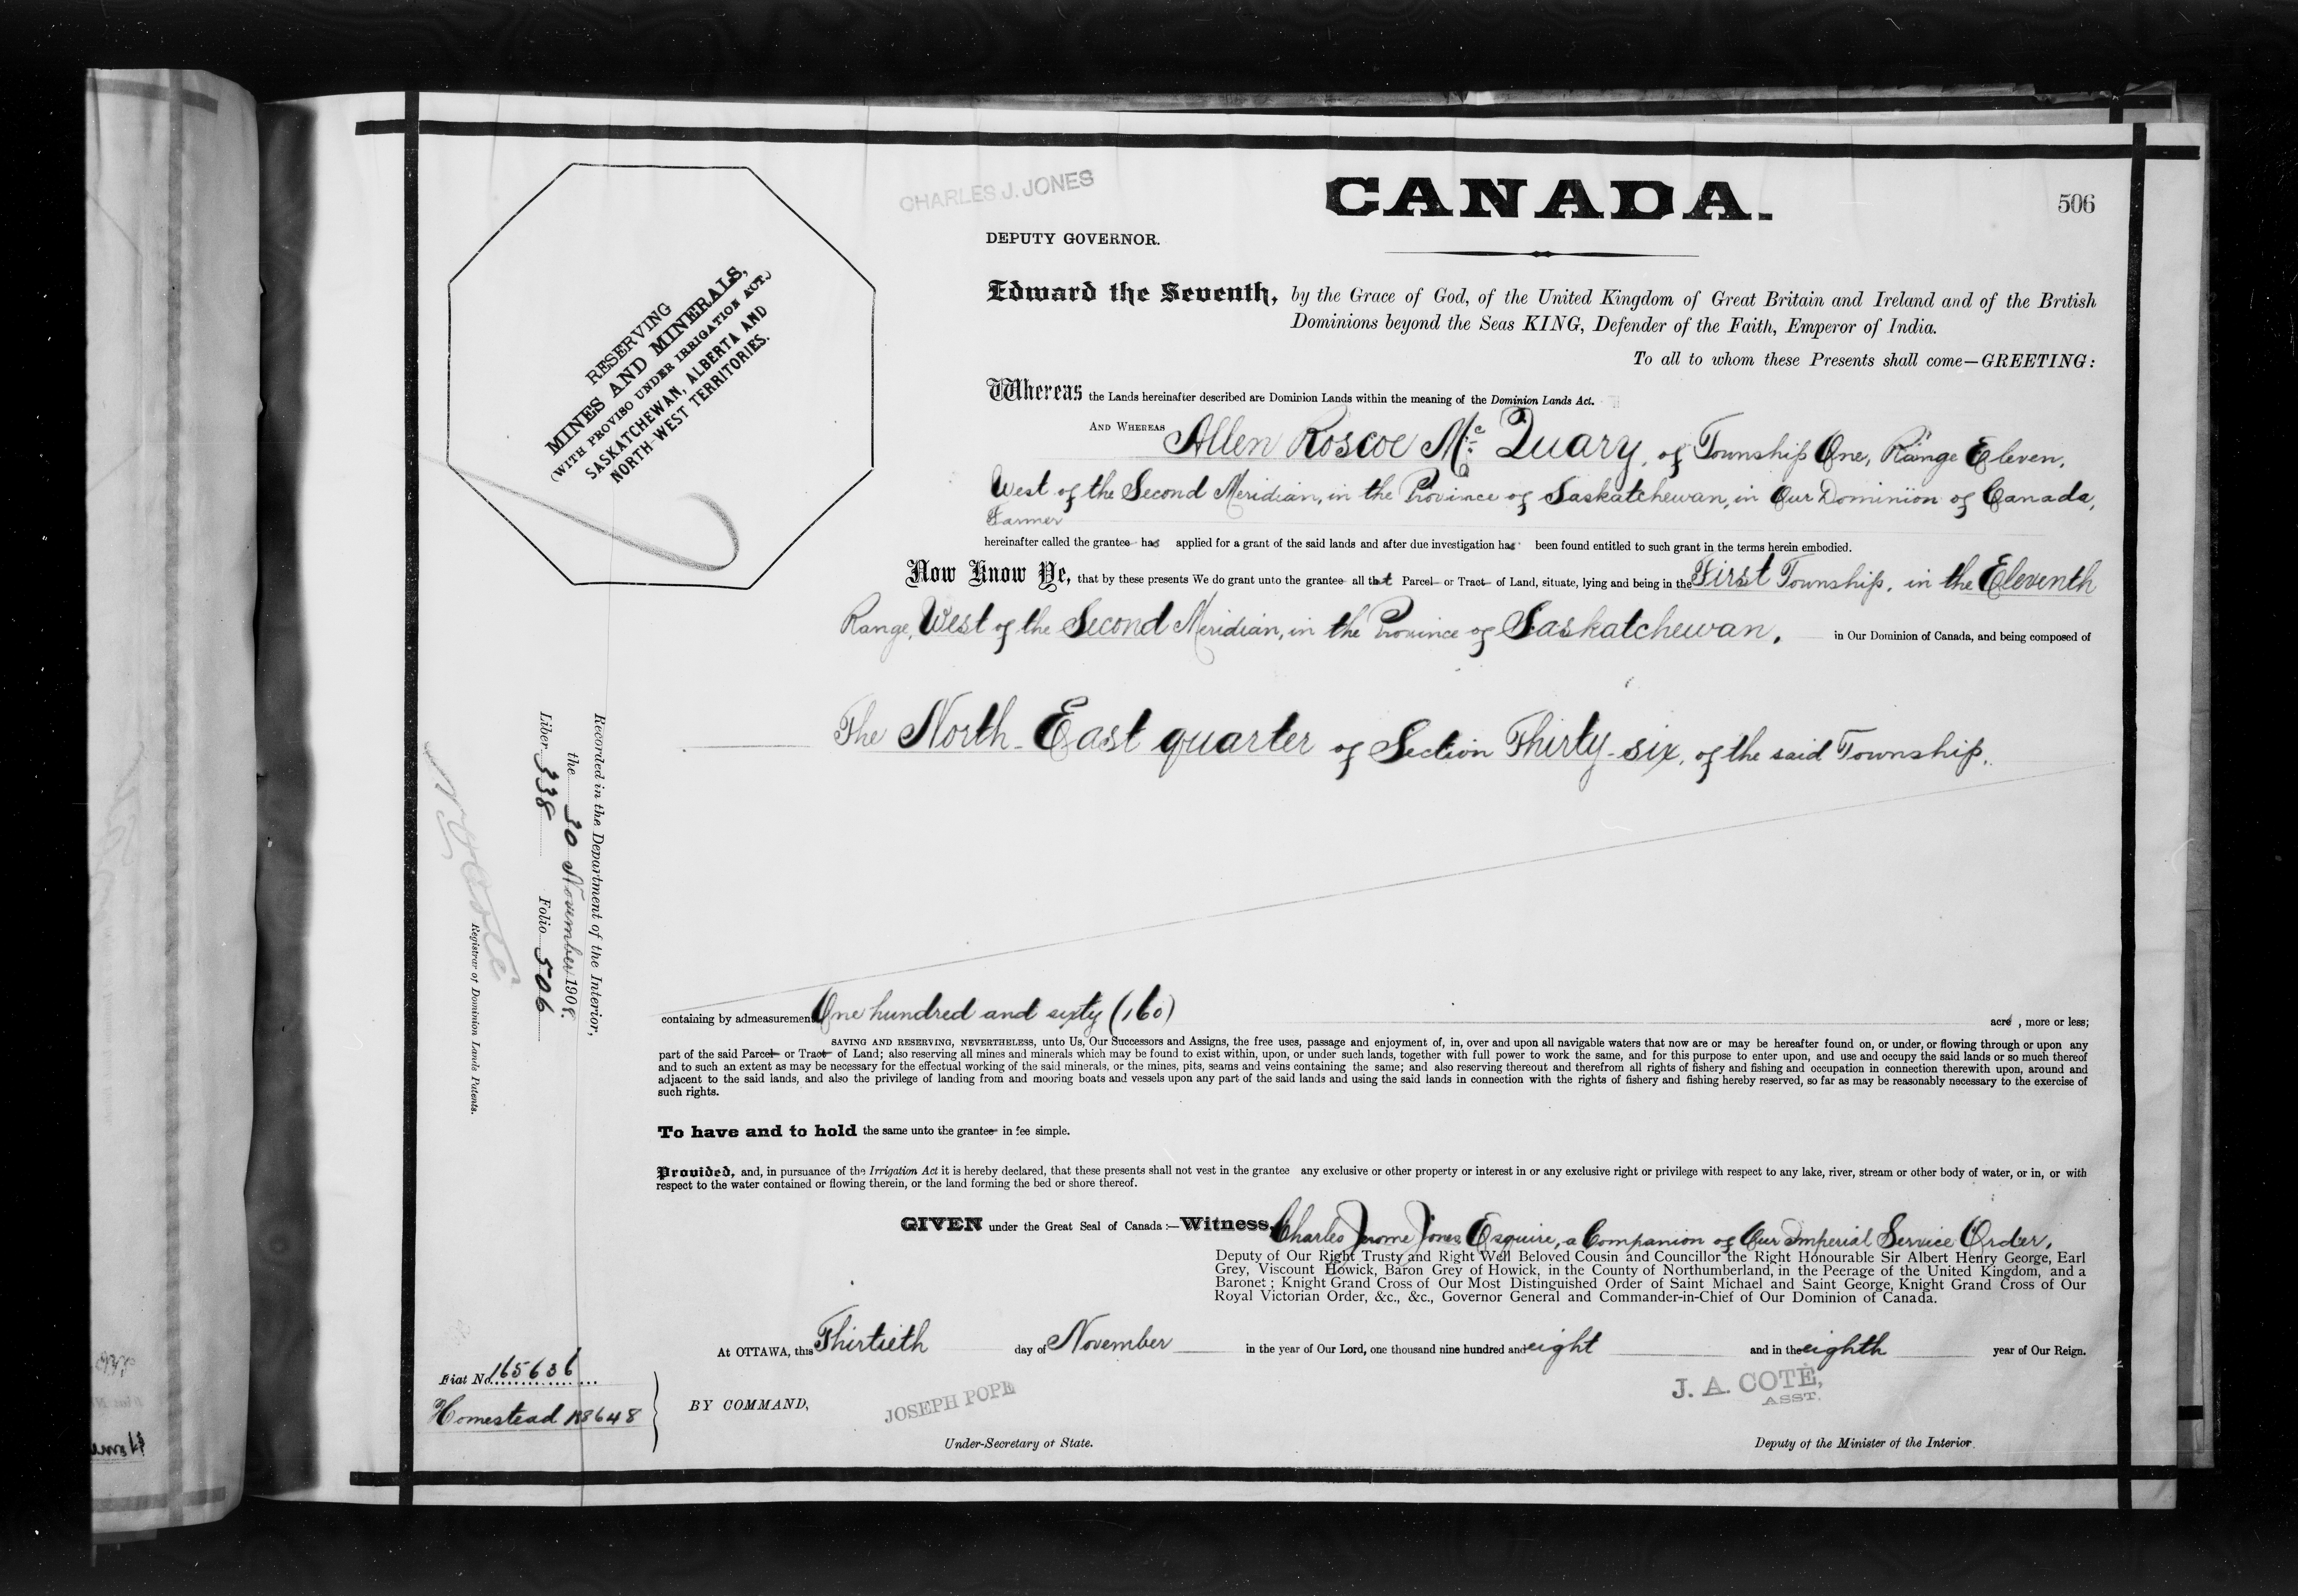 CHARLES J. JONES
CANADA.
506
DEPUTY GOVERNOR.
RESERVING
MINES AND MINERALS,
(WITH PROVISO UNDER IRRIGATION ACT.)
SASKATCHEWAN, ALBERTA AND
NORTH-WEST TERRITORIES.
Edward the Seventh, by the Grace of God, of the United Kingdom of Great Britain and Ireland and of the British
Dominions beyond the Seas KING, Defender of the Faith, Emperor of India.
To all to whom these Presents shall come—GREETING:
Whereas the Lands hereinafter described are Dominion Lands within the meaning of the Dominion Lands Act.
AND WHEREAS Allen Roscoe Mc Quary, of Township One, Range Eleven,
West of the Second Meridian, in the Province of Saskatchewan, in Our Dominion of Canada,
Farmer
hereinafter called the grantee has applied for a grant of the said lands and after due investigation has been found entitled to such grant in the terms herein embodied.
Now Know Ye, that by these presents We do grant unto the grantee all that Parcel or Tract of Land, situate, lying and being in the First Township, in the Eleventh
Range, West of the Second Meridian, in the Province of Saskatchewan, in Our Dominion of Canada, and being composed of
The North-East quarter of Section Thirty-six, of the said Township.
containing by admeasurement One hundred and sixty (160) acre, more or less;
SAVING AND RESERVING, NEVERTHELESS, unto Us, Our Successors and Assigns, the free uses, passage and enjoyment of, in, over and upon all navigable waters that now are or may be hereafter found on, or under, or flowing through or upon any
part of the said Parcel or Tract of Land; also reserving all mines and minerals which may be found to exist within, upon, or under such lands, together with full power to work the same, and for this purpose to enter upon, and use and occupy the said lands or so much thereof
and to such an extent as may be necessary for the effectual working of the said minerals, or the mines, pits, seams and veins containing the same; and also reserving thereout and therefrom all rights of fishery and fishing and occupation in connection therewith upon, around and
adjacent to the said lands, and also the privilege of landing from and mooring boats and vessels upon any part of the said lands and using the said lands in connection with the rights of fishery and fishing hereby reserved, so far as may be reasonably necessary to the exercise of
such rights.
To have and to hold the same unto the grantee in fee simple.
Provided, and, in pursuance of the Irrigation Act it is hereby declared, that these presents shall not vest in the grantee any exclusive or other property or interest in or any exclusive right or privilege with respect to any lake, river, stream or other body of water, or in, or with
respect to the water contained or flowing therein, or the land forming the bed or shore thereof.
GIVEN under the Great Seal of Canada :—Witness, Charles Jerome Jones Esquire, a Companion of Our Imperial Service Order,
Deputy of Our Right Trusty and Right Well Beloved Cousin and Councillor the Right Honourable Sir Albert Henry George, Earl
Grey, Viscount Howick, Baron Grey of Howick, in the County of Northumberland, in the Peerage of the United Kingdom, and a
Baronet; Knight Grand Cross of Our Most Distinguished Order of Saint Michael and Saint George, Knight Grand Cross of Our
Royal Victorian Order, &c., &c., Governor General and Commander-in-Chief of Our Dominion of Canada.
At OTTAWA, this Thirtieth day of November in the year of Our Lord, one thousand nine hundred and eight and in the eighth year of Our Reign.
BY COMMAND,
JOSEPH POPE
Under-Secretary of State.
J. A. COTÉ,
ASST.
Deputy of the Minister of the Interior.
Recorded in the Department of the Interior,
the 30 November 1908.
Liber 338 Folio 506
N O Coté
Registrar of Dominion Lands Patents.
Fiat No. 165636
Homestead 188648